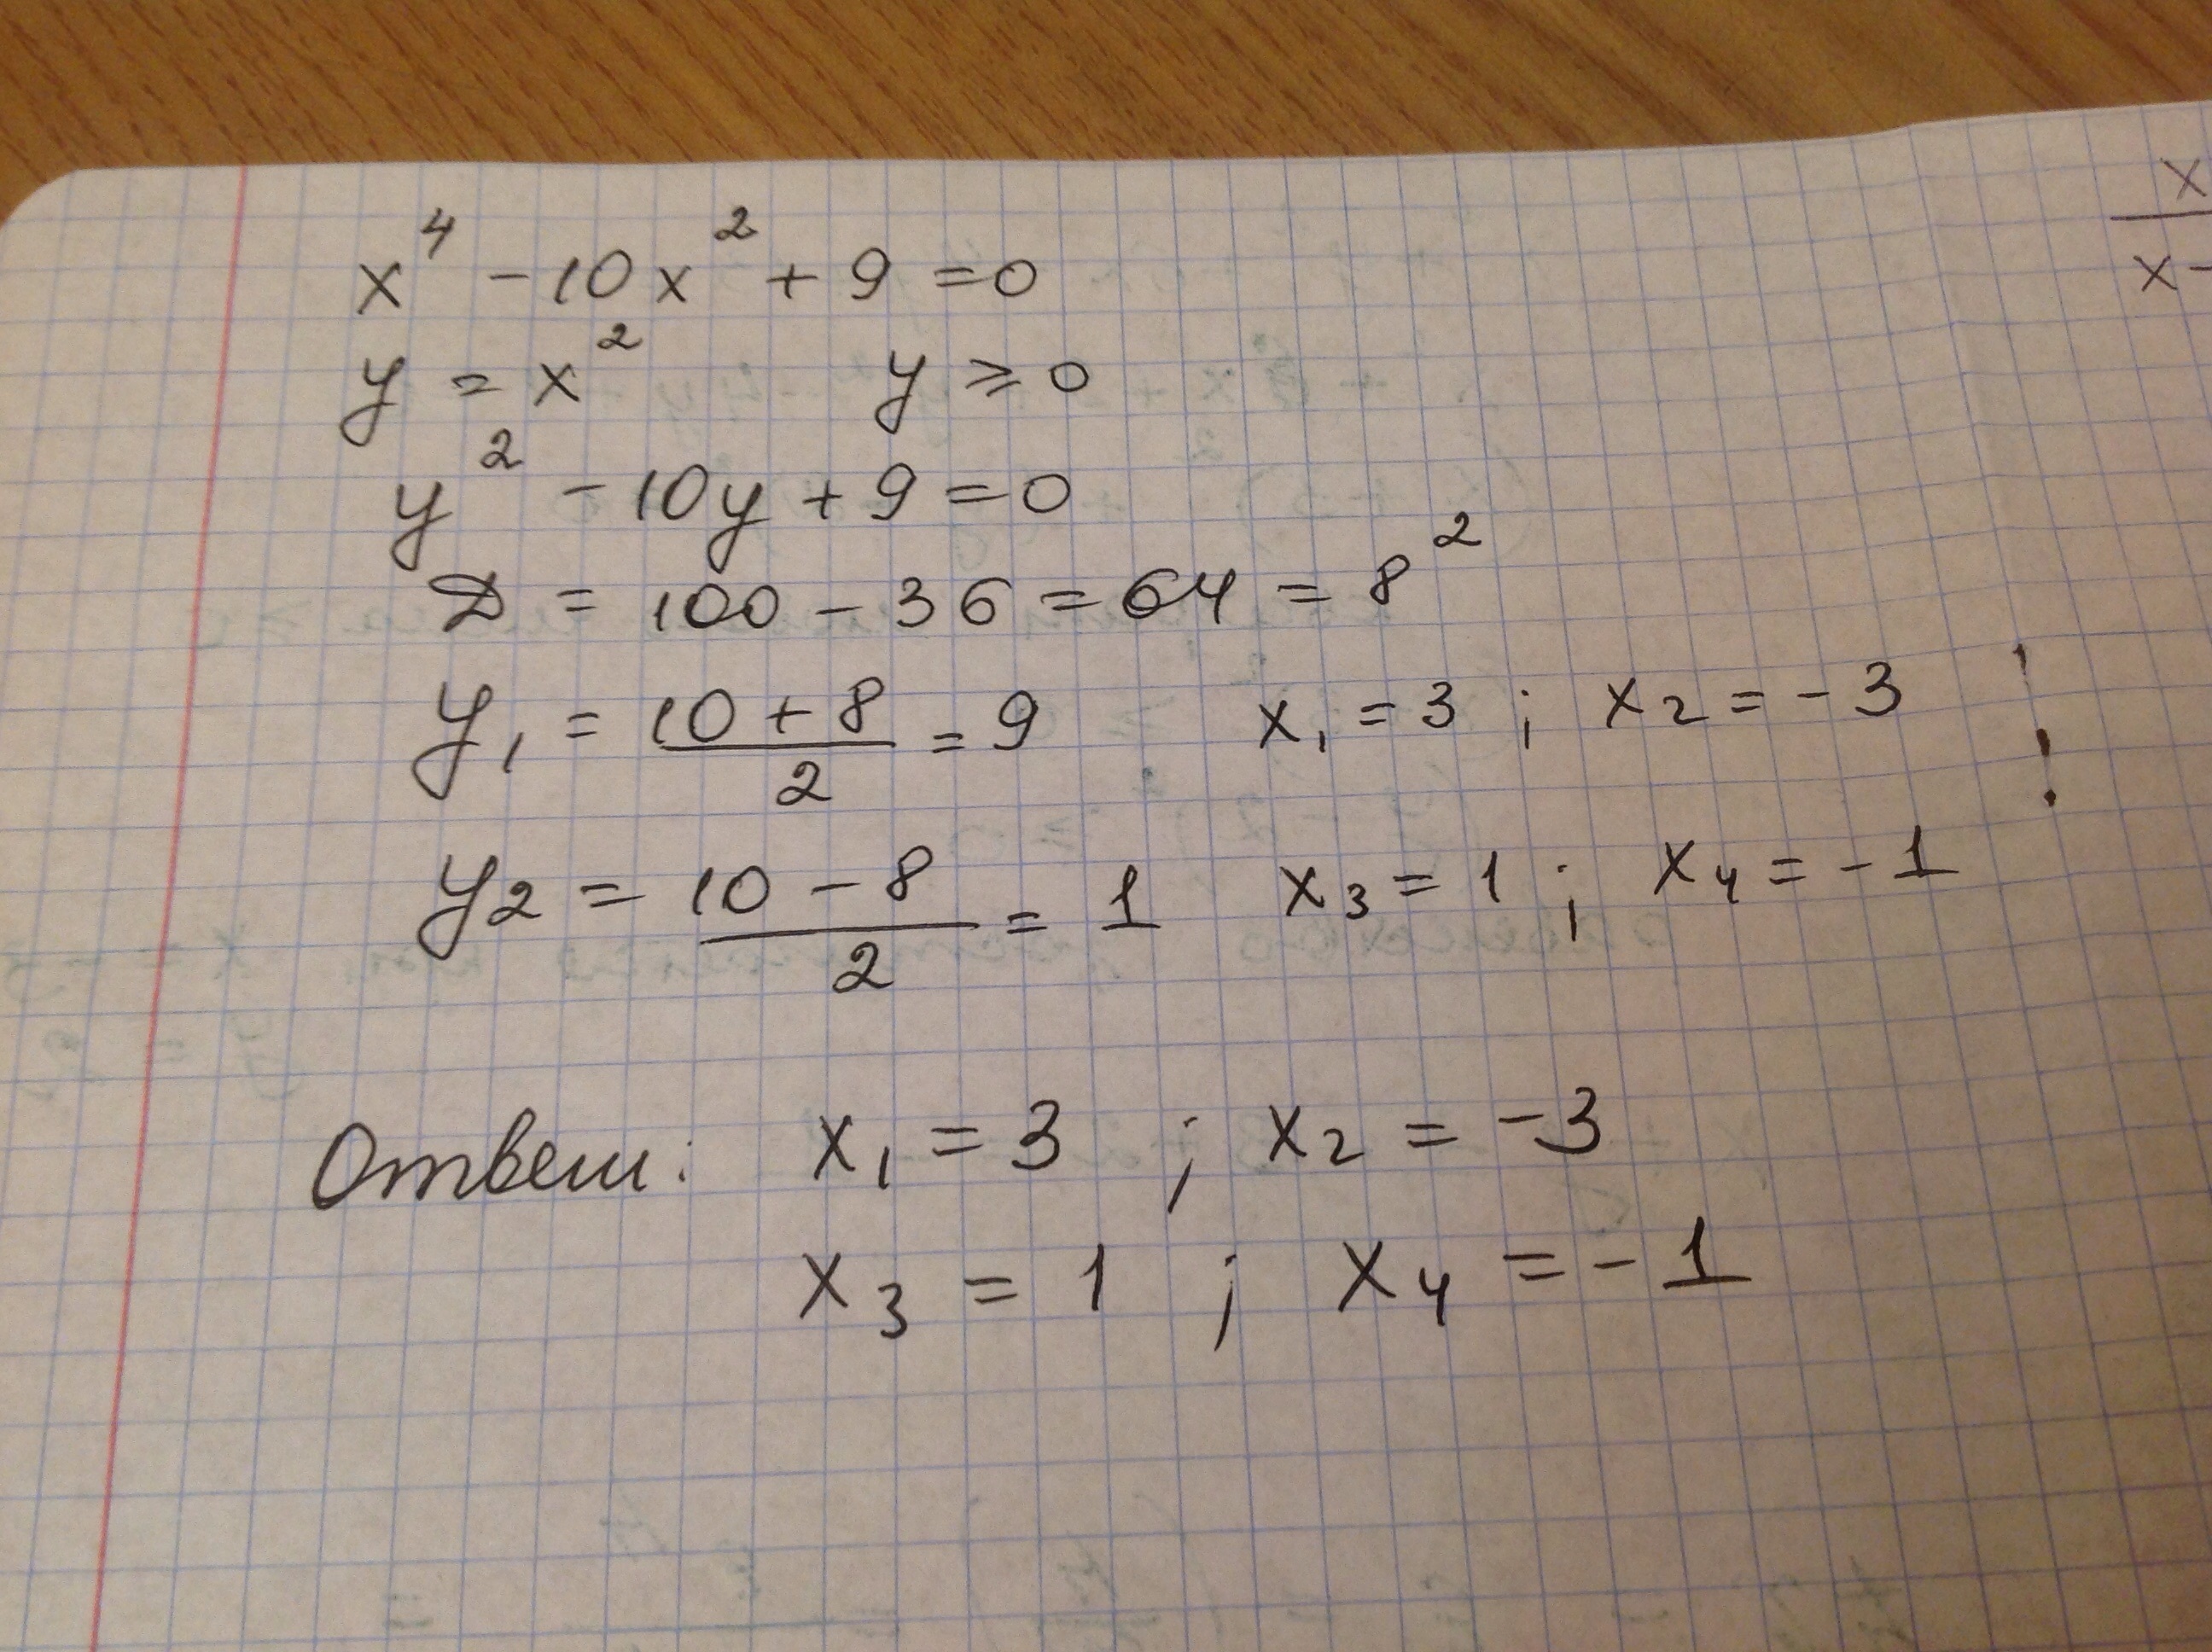 x⁴ - 10x² + 9 = 0
y = x² y ⩾ 0
y² - 10y + 9 = 0
D = 100 - 36 = 64 = 8²
y₁ = (10 + 8)/2 = 9 x₁ = 3 ; x₂ = -3 !
y₂ = (10 - 8)/2 = 1 x₃ = 1 ; x₄ = -1
Ответ: x₁ = 3 ; x₂ = -3
x₃ = 1 ; x₄ = -1
x
x -